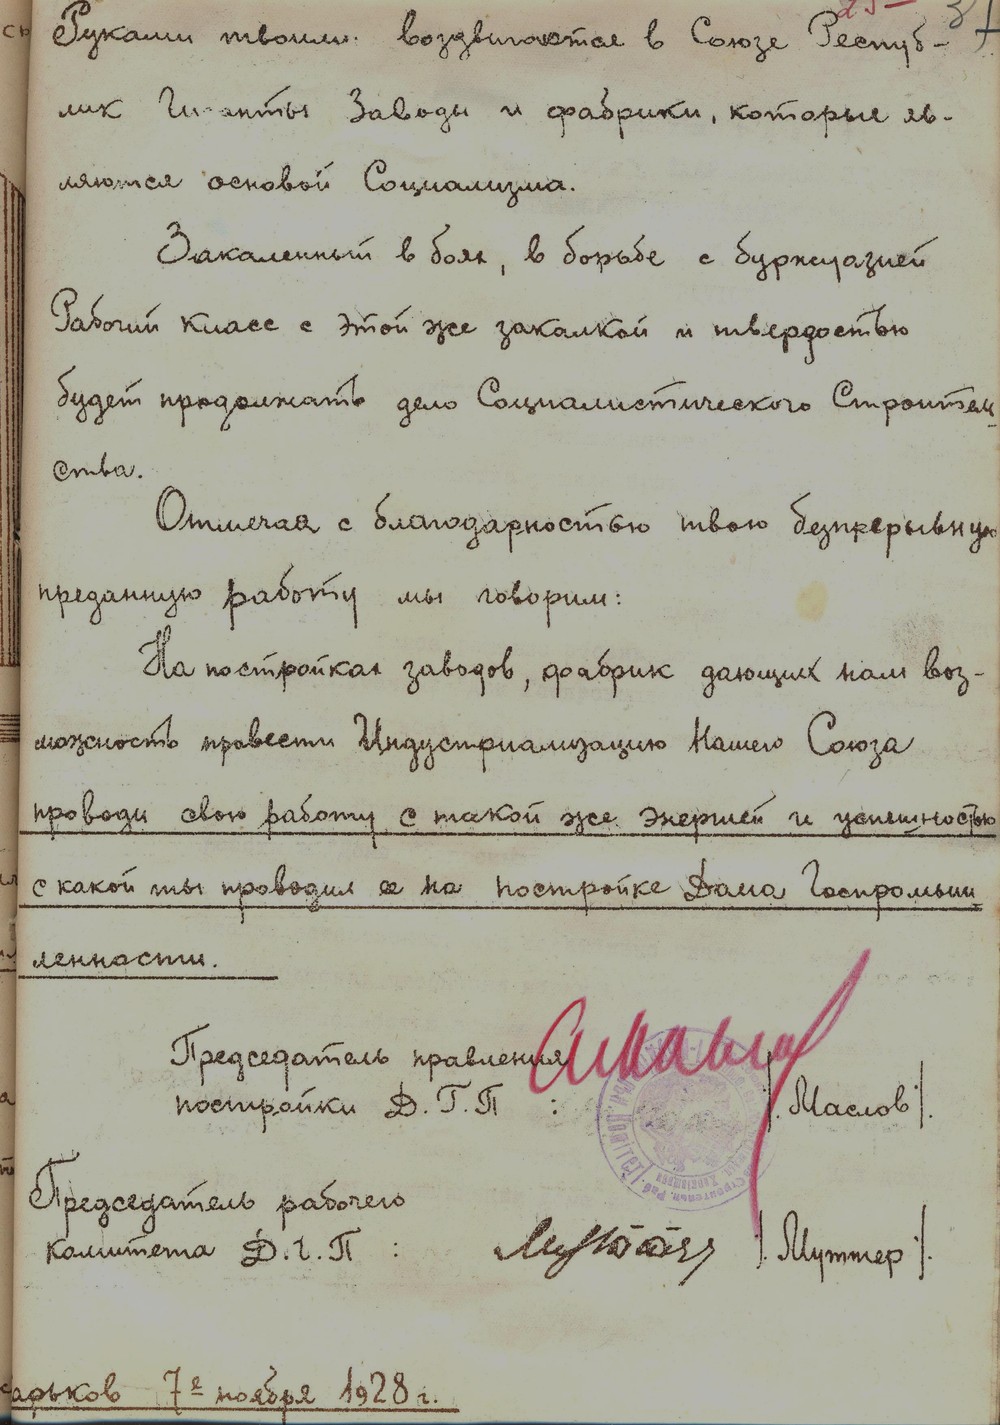 Руками твоими воздвигаются в Союзе Респуб-
лик Гиганты Заводы и фабрики, которые яв-
ляются основой Социализма.
Закаленный в боях, в борьбе с буржуазией
Рабочий класс с этой же закалкой и твердостью
будет продолжать дело Социалистического Строитель-
ства.
Отмечая с благодарностью твою безпрерывную
преданную работу мы говорим:
На постройках заводов, фабрик дающих нам воз-
можность провести Индустриализацию Нашего Союза
проводи свою работу с такой же энергией и успешностью
с какой ты проводил ее на постройке Дома Госпромыш-
ленности.
Председатель правления
постройки Д.Г.П : /Маслов/.
Председатель рабочего
комитета Д.Г.П : /Муттер/.
арьков 7е ноября 1928 г.